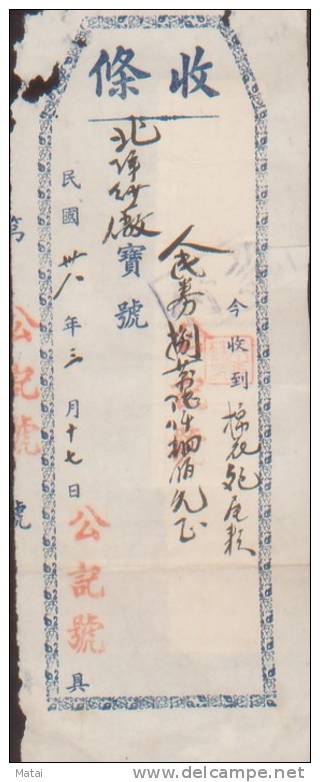 收條
今收到棉花尾款
人民券捌萬陸仟佰元正
北寶號
民國卅八年三月十七日
公記號
具
第
公記號
號
Matai
delcampe.net